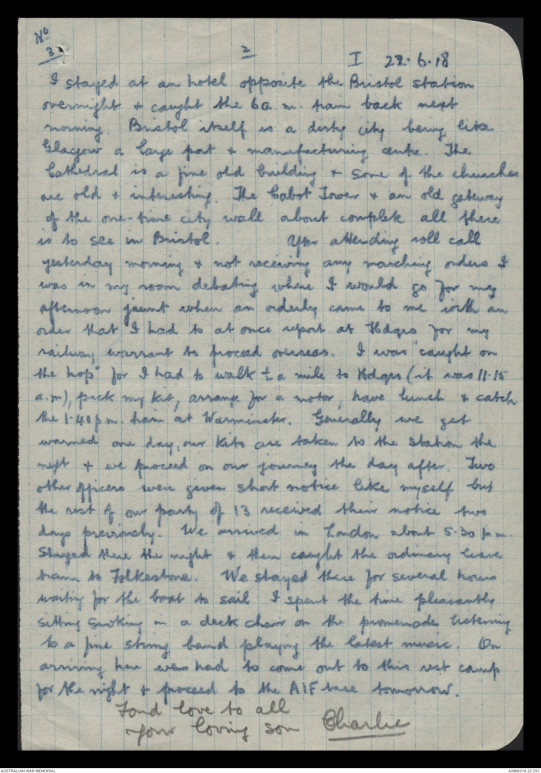 No
3
2
I 28.6.18
I stayed at an hotel opposite the Bristol station
overnight & caught the 6 a.m. train back next
morning. Bristol itself is a dirty city being like
Glasgow a large port & manufacturing centre. The
Cathedral is a fine old building & some of the churches
are old & interesting. The Cabot Tower & an old gateway
of the one-time city wall about complete all there
is to see in Bristol. After attending roll call
yesterday morning & not receiving any marching orders I
was in my room debating where I would go for my
afternoon jaunt when an orderly came to me with an
order that I had to at once report at Hdqrs for my
railway warrant to proceed overseas. I was "caught on
the hop" for I had to walk ½ a mile to Hdqrs (it was 11.15
a.m), pick my kit, arrange for a motor, have lunch & catch
the 1.40 p.m. train at Warminster. Generally we get
warned one day, our kits are taken to the station the
next & we proceed on our journey the day after. Two
other officers were given short notice like myself but
the rest of our party of 13 received their notice two
days previously. We arrived in London about 5.30 p.m.
Stayed there the night & then caught the ordinary leave
train to Folkestone. We stayed there for several hours
waiting for the boat to sail I spent the time pleasantly
sitting smoking in a deck chair on the promenade listening
to a fine string band playing the latest music. On
arriving here we had to come out to this rest camp
for the night & proceed to the AIF base tomorrow.
Fond love to all
Your loving son Charlie
AUSTRALIAN WAR MEMORIAL